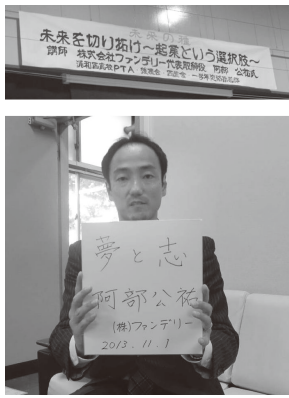 未来の種
未来を切り拓け～起業という選択肢～
講師 株式会社ファンデリー代表取締役 阿部 公祐氏
浦和高等学校PTA・後援会
夢と志
阿部公祐
(株)ファンデリー
2013.11.1